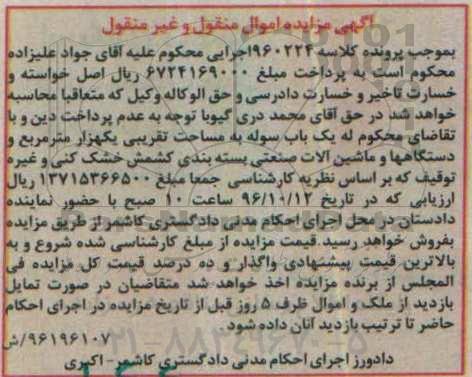 آگهی مزایده اموال منقول و غیر منقول
بموجب پرونده کلاسه ۹۶۰۲۲۴اجرایی محکوم علیه آقای جواد علیزاده
محکوم است به پرداخت مبلغ ۶۷۲۴۱۶۹۰۰۰ ریال اصل خواسته و
خسارت تاخیر و خسارت دادرسی و حق الوکاله وکیل که متعاقبا محاسبه
خواهد شد در حق آقای محمد دری گیوبا توجه به عدم پرداخت دین و با
تقاضای محکوم له یک باب سوله به مساحت تقریبی یکهزار مترمربع و
دستگاهها و ماشین آلات صنعتی بسته بندی کشمش خشک کنی و غیره
توقیف که بر اساس نظریه کارشناسی جمعا مبلغ ۱۳۷۱۵۳۶۶۵۰۰ ریال
ارزیابی که در تاریخ ۹۶/۱۰/۱۲ ساعت ۱۰ صبح با حضور نماینده
دادستان در محل اجرای احکام مدنی دادگستری کاشمر از طریق مزایده
بفروش خواهد رسید.قیمت مزایده از مبلغ کارشناسی شده شروع و به
بالاترین قیمت پیشنهادی واگذار و ده درصد قیمت کل مزایده فی
المجلس از برنده مزایده اخذ خواهد شد متقاضیان در صورت تمایل
بازدید از ملک و اموال ظرف ۵ روز قبل از تاریخ مزایده در اجرای احکام
حاضر تا ترتیب بازدید آنان داده شود
۹۶۱۹۶۱۰۷/ش
۰۲۱-۸۸۳۴۹۶۷۰-۵
دادورز اجرای احکام مدنی دادگستری کاشمر- اکبری